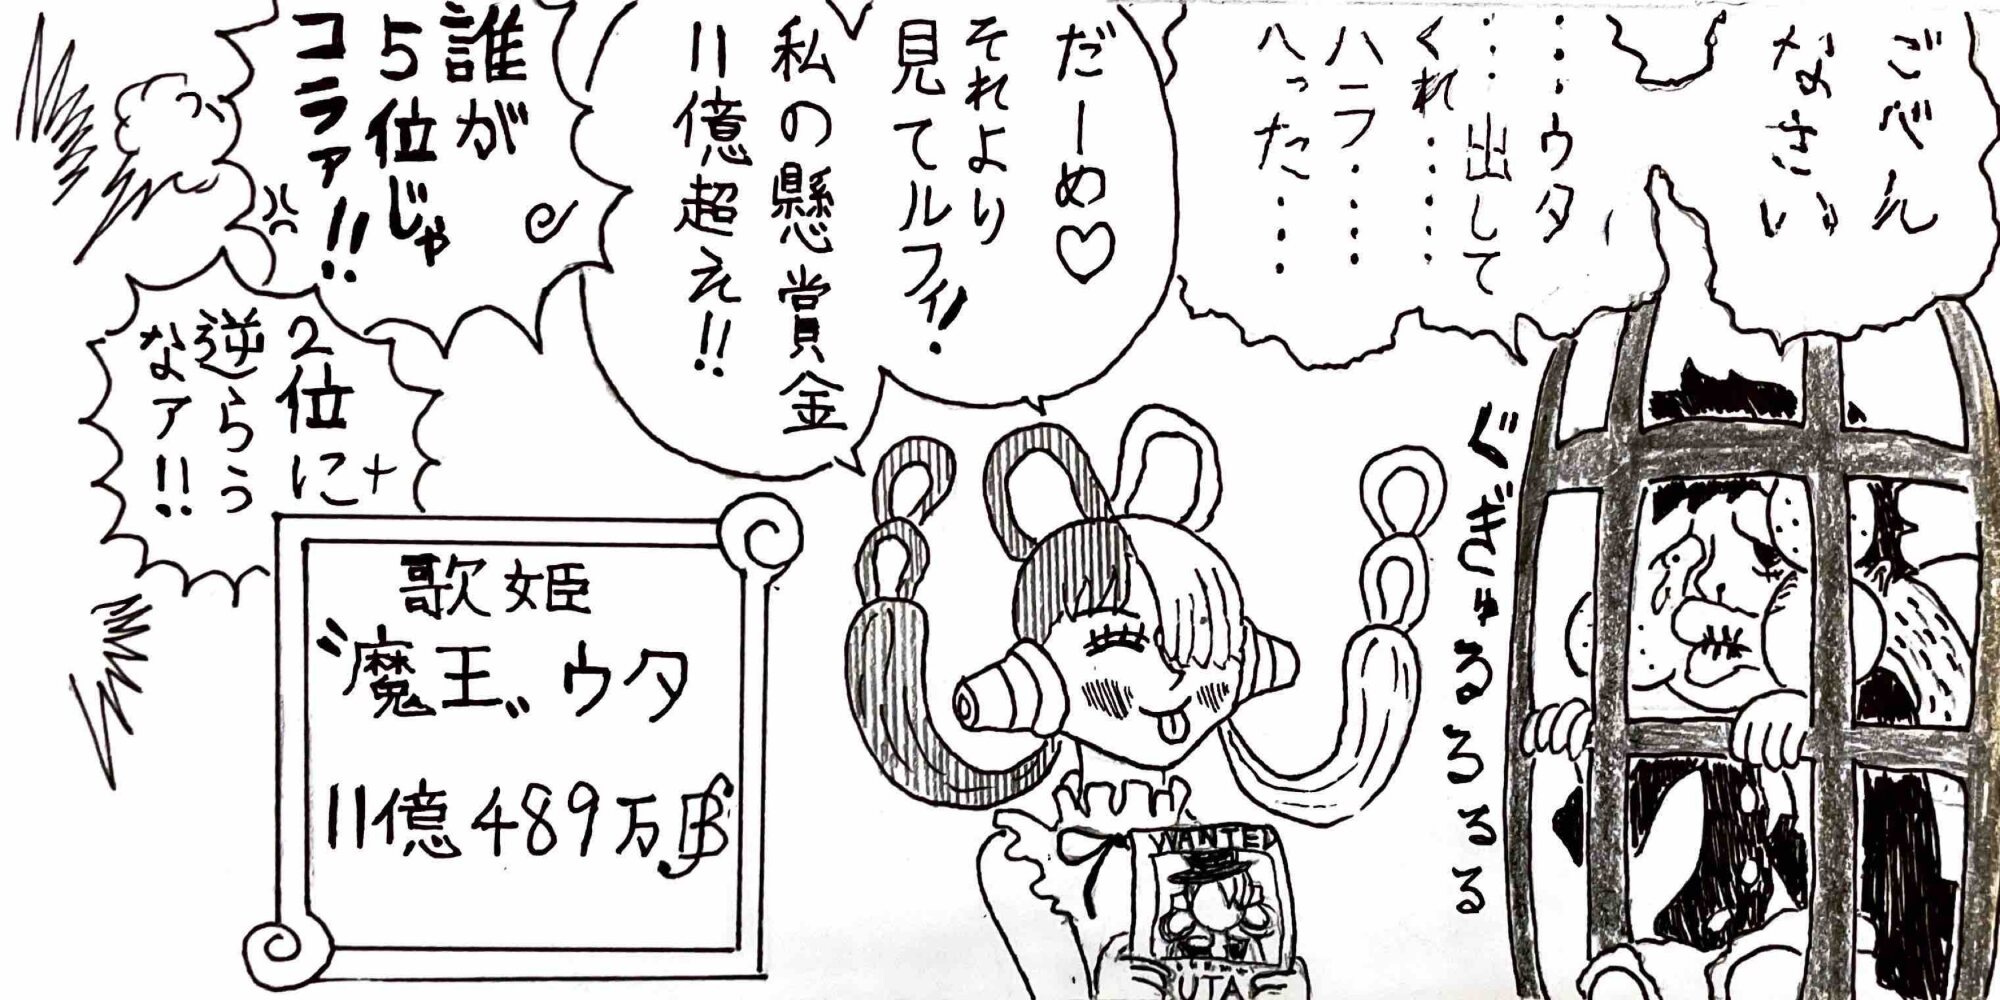 ごべん
なさい
…ウタ
…出して
くれ……
ハラ……
へった……
ぐぎゅるるるるる
だーめ♡
それより
見てルフィ!
私の懸賞金
11億超え!!
誰が
5位じゃ
コラァ!!
2位に
逆らう
なァ!!
歌姫
〝魔王〟ウタ
11億489万฿
WANTED
UTA